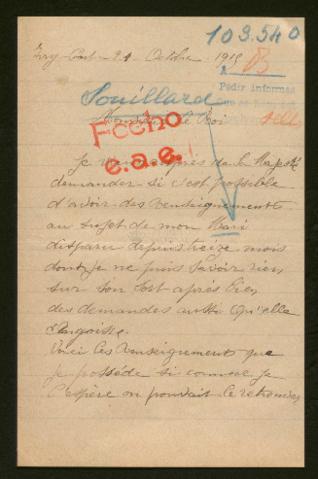 103.540
Ivry-Port 24 Octobre 1915
A 85
Pedir informes
Souillard
Monsieur le Roi
Fecho
e.a.e.
Je viens auprès de la Majesté
demander si s'est possible
d'avoir des renseignements
au sujet de mon Mari
disparu depuis treize mois
dont je ne puis savoir rien
sur son sort après bien
des demandes aussi Qu'elle
d'Angoisse.
Voici les renseignements que
je possède si comme je
l'espère on pouvait le retrouver